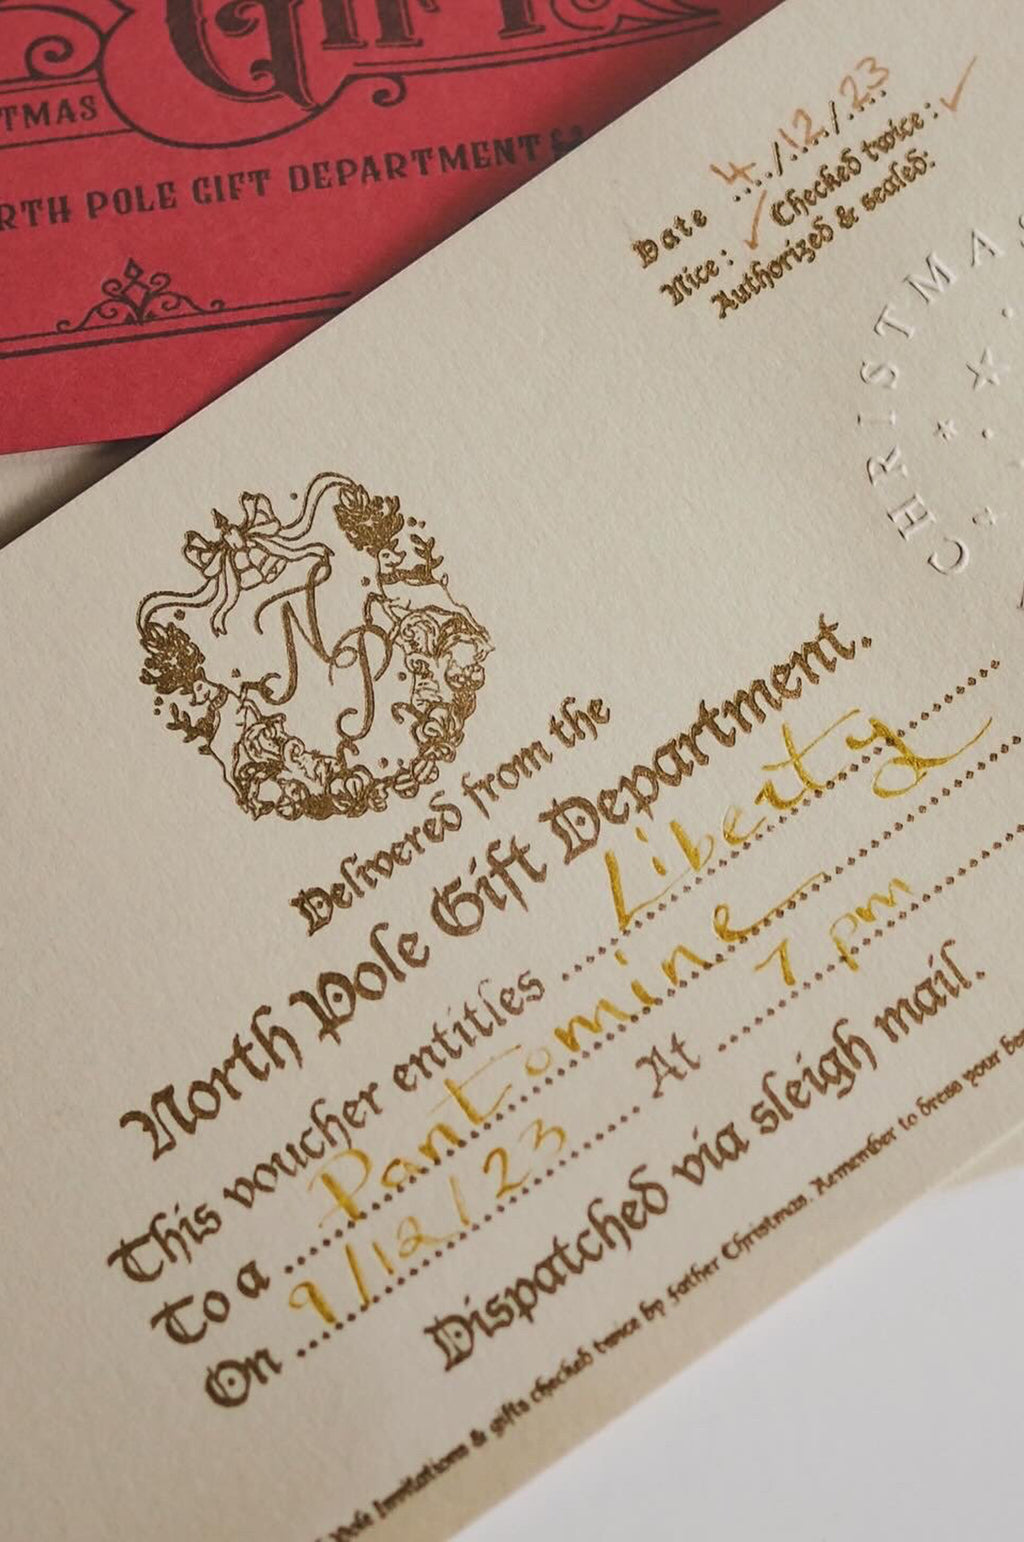 GIFT
TMAS
RTH POLE GIFT DEPARTMENT
Date 4/12/23
Nice: ✓ Checked twice: ✓
Authorized & sealed:
CHRISTMAS
NP
Delivered from the
North Pole Gift Department.
This voucher entitles Liberty
To a Pantomine
On 9/12/23 At 7 pm
Dispatched via sleigh mail.
Pole Invitations & gifts checked twice by Father Christmas. Remember to dress your be